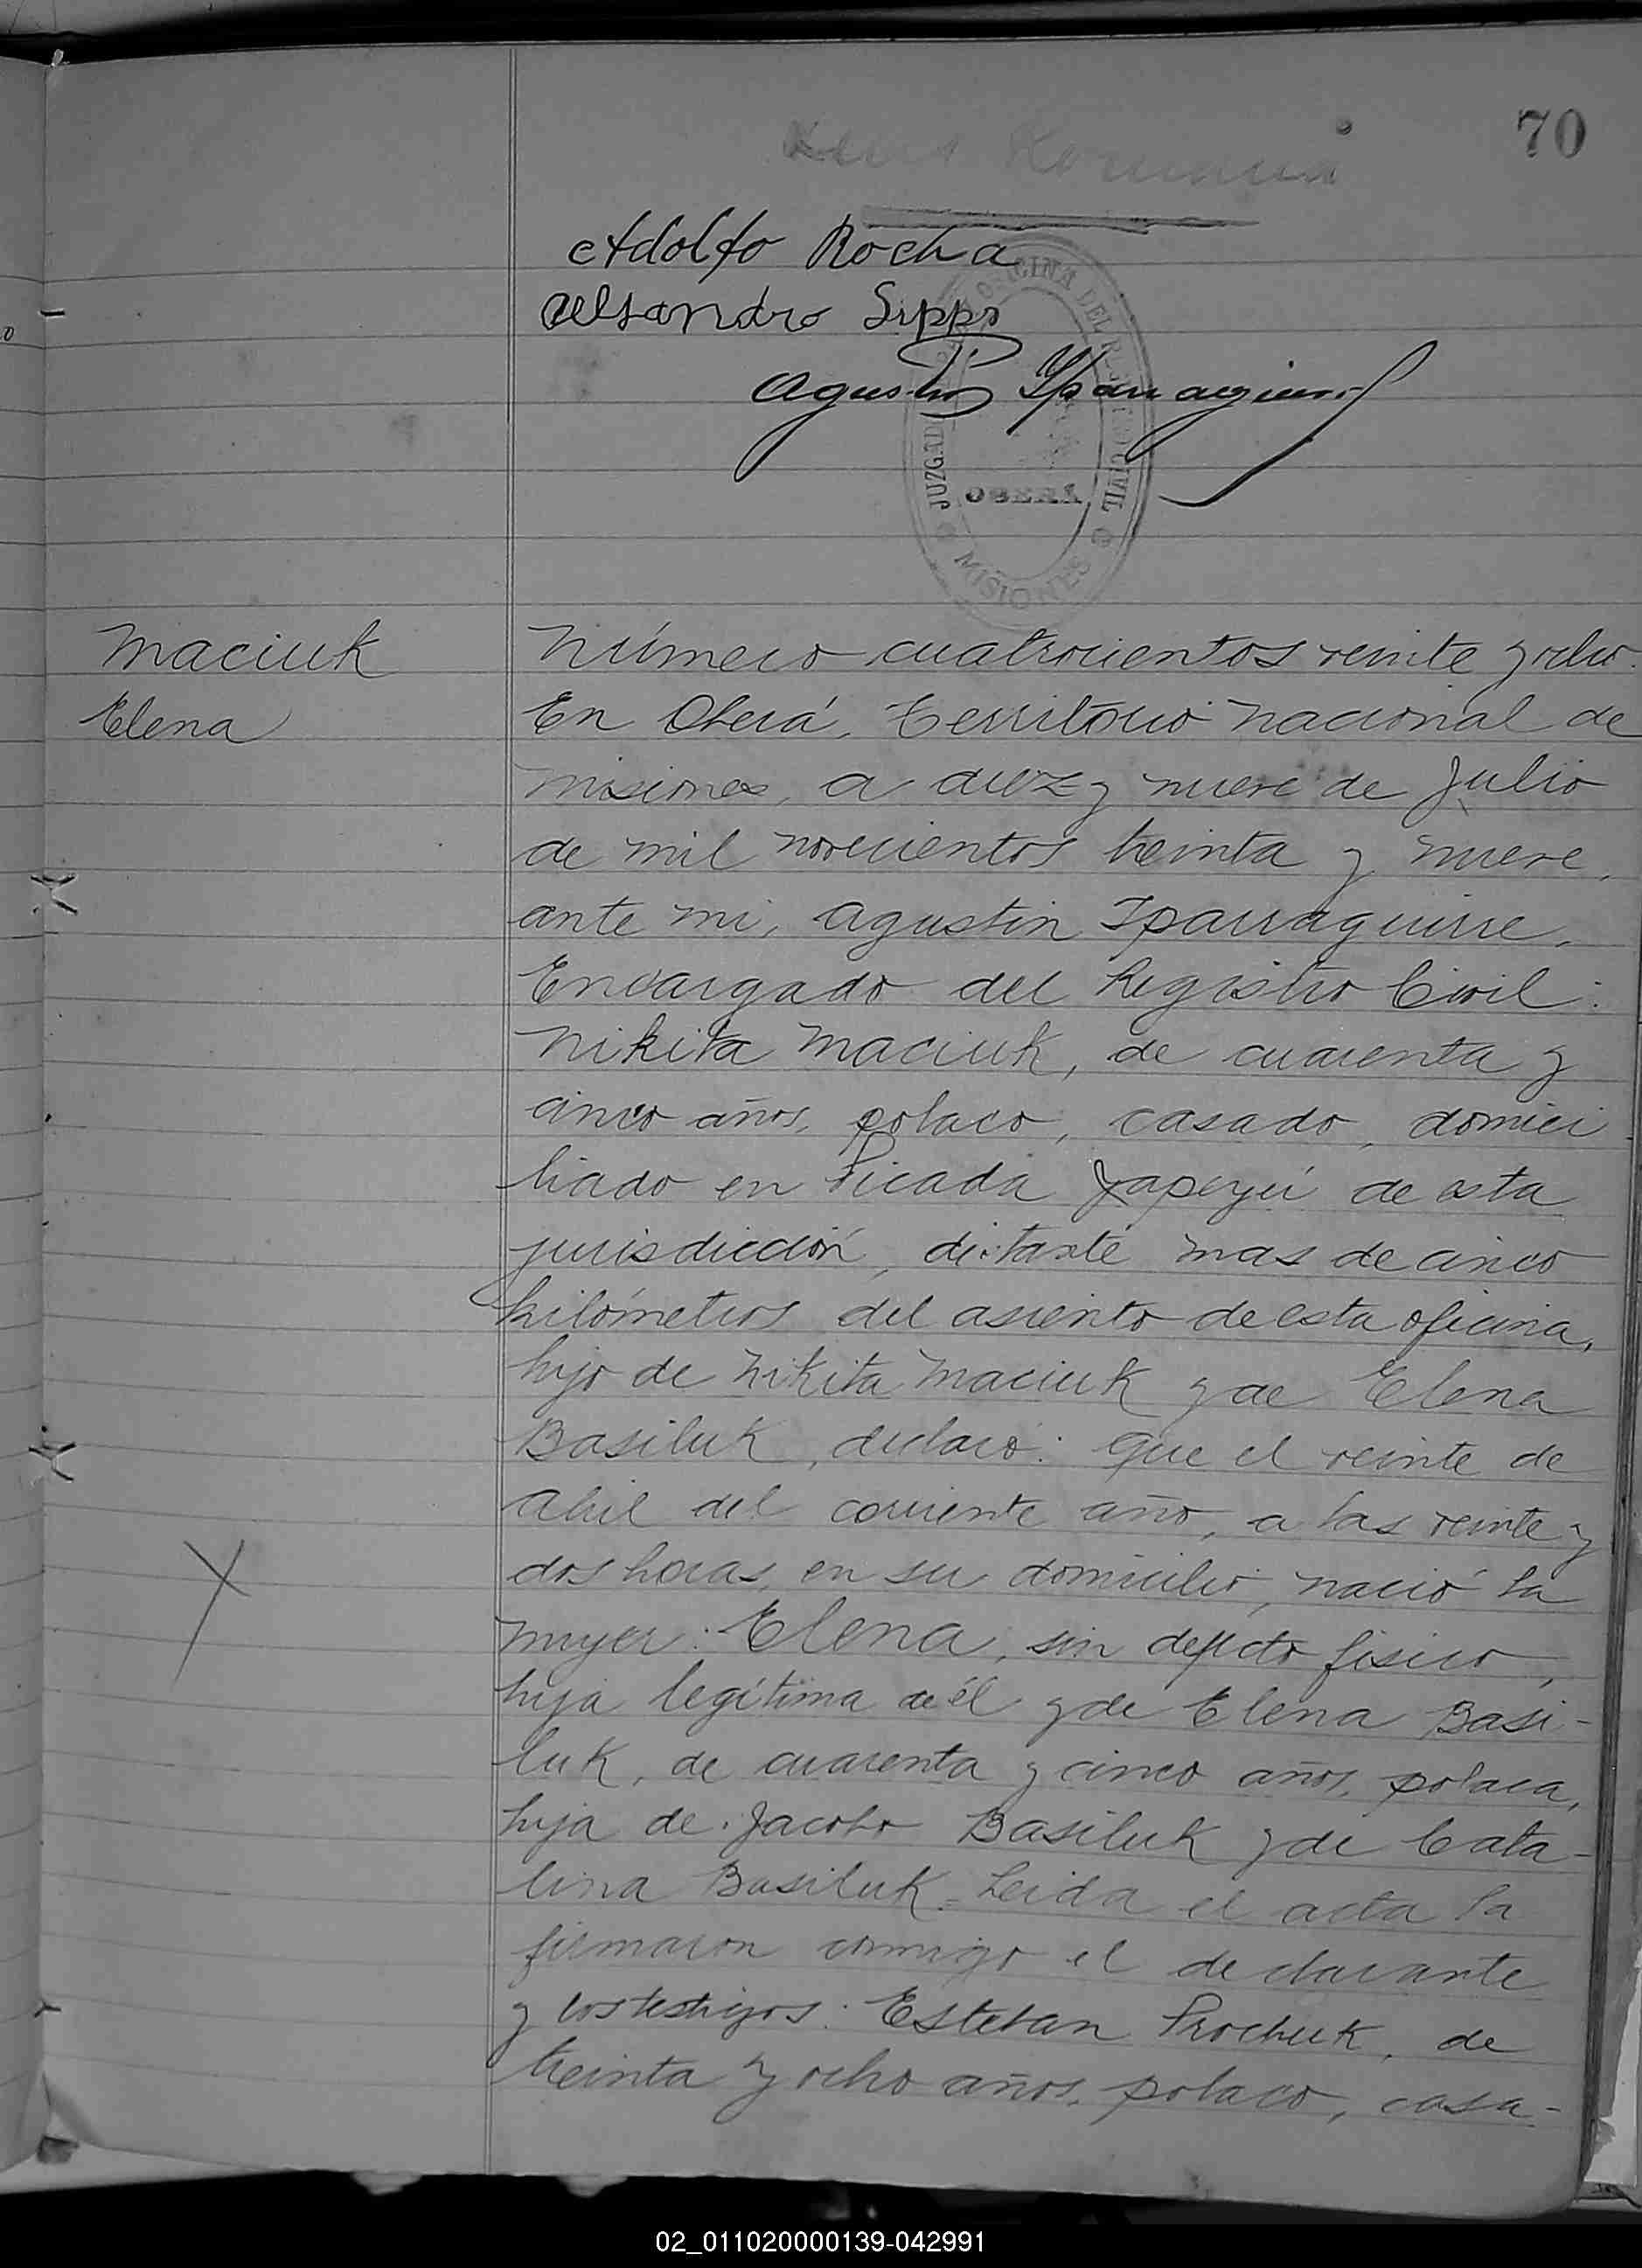 70
Adolfo Rocha
Alsandro Sipps
Agustin Yparraguirre
JUZGADO DE PAZ Y OFICINA DEL REGISTRO CIVIL
OBERÁ
MISIONES
Maciuk
Elena
Número cuatrocientos veinte y ocho.
En Oberá, Territorio Nacional de
Misiones, a diez y nueve de Julio
de mil novecientos treinta y nueve,
ante mi, Agustin Iparraguirre,
Encargado del Registro Civil:
Nikita Maciuk, de cuarenta y
cinco años, polaco, casado, domici-
liado en Picada Yapeyú de esta
jurisdicción, distante mas de cinco
kilómetros del asiento de esta oficina,
hijo de Nikita Maciuk y de Elena
Basiluk, declaró: Que el veinte de
Abril del corriente año, a las veinte y
dos horas, en su domicilio, nació la
mujer: Elena, sin defecto físico,
hija legítima de él y de Elena Basi-
luk, de cuarenta y cinco años, polaca,
hija de Jacobo Basiluk y de Cata-
lina Basiluk. Leida el acta la
firmaron conmigo el declarante
y los testigos: Esteban Prochuk, de
treinta y ocho años, polaco, casa-
02_011020000139-042991